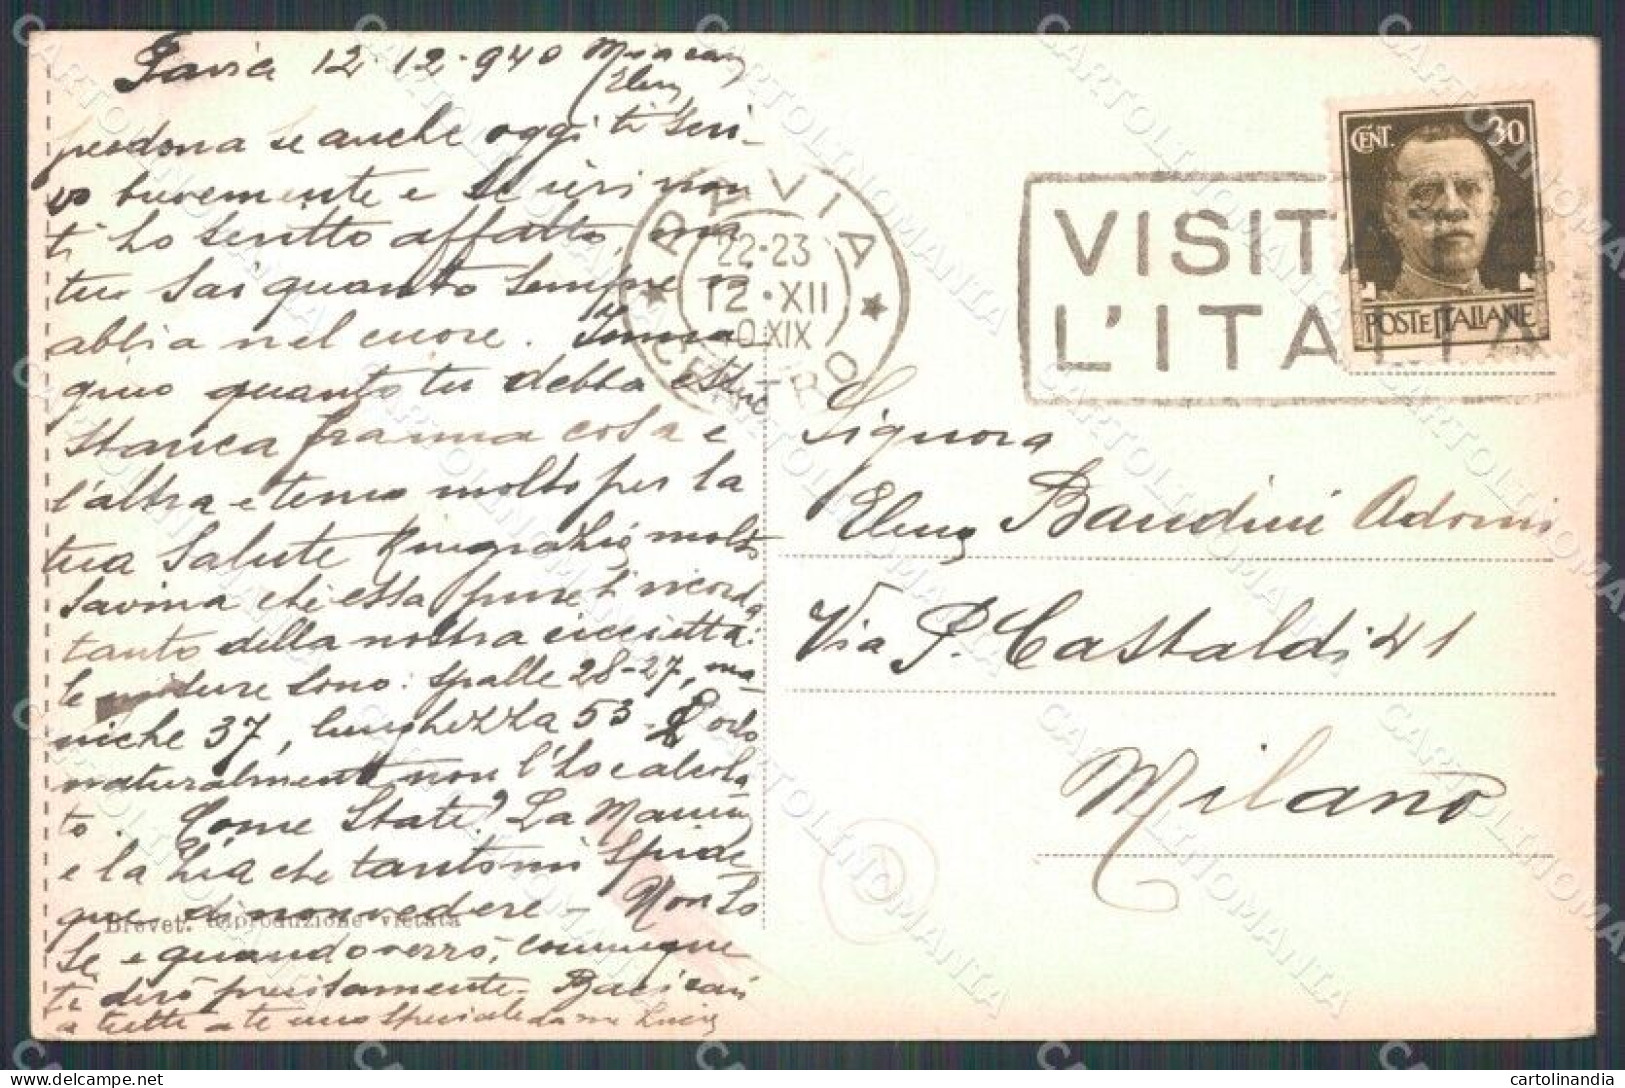 Pavia 12-12-940 Mia cara
Elena
perdona se anche oggi ti scri-
vo brevemente e se ieri non
ti ho scritto affatto, ma
tu sai quanto sempre ti
abbia nel cuore. Imma
gino quanto tu debba essere
stanca fra una cosa e
l'altra e temo molto per la
tua salute Ringrazio molto
Savina che essa pure si ricorda
tanto della nostra
le misure sono: spalle 28-27, ma-
niche 37, lunghezza 53. L'orlo
naturalmente non l'ho calcola
to. Come state? La Mamma
e la Zia che tanto mi spiace
qui di non vedere - Non so
se e quando verrò, comunque
ti dirò precisamente. Baci cari
a tutti a te uno speciale da
Brevet. riproduzione vietata
PAVIA
22-23
12·XII
40 XIX
CENTRO
VISITATE
L'ITALIA
CENT. 30
POSTE ITALIANE
Signora
Elena Bandini Adorni
Via P. Castaldi 41
Milano
CARTOLINOMANIA
cartolinandia